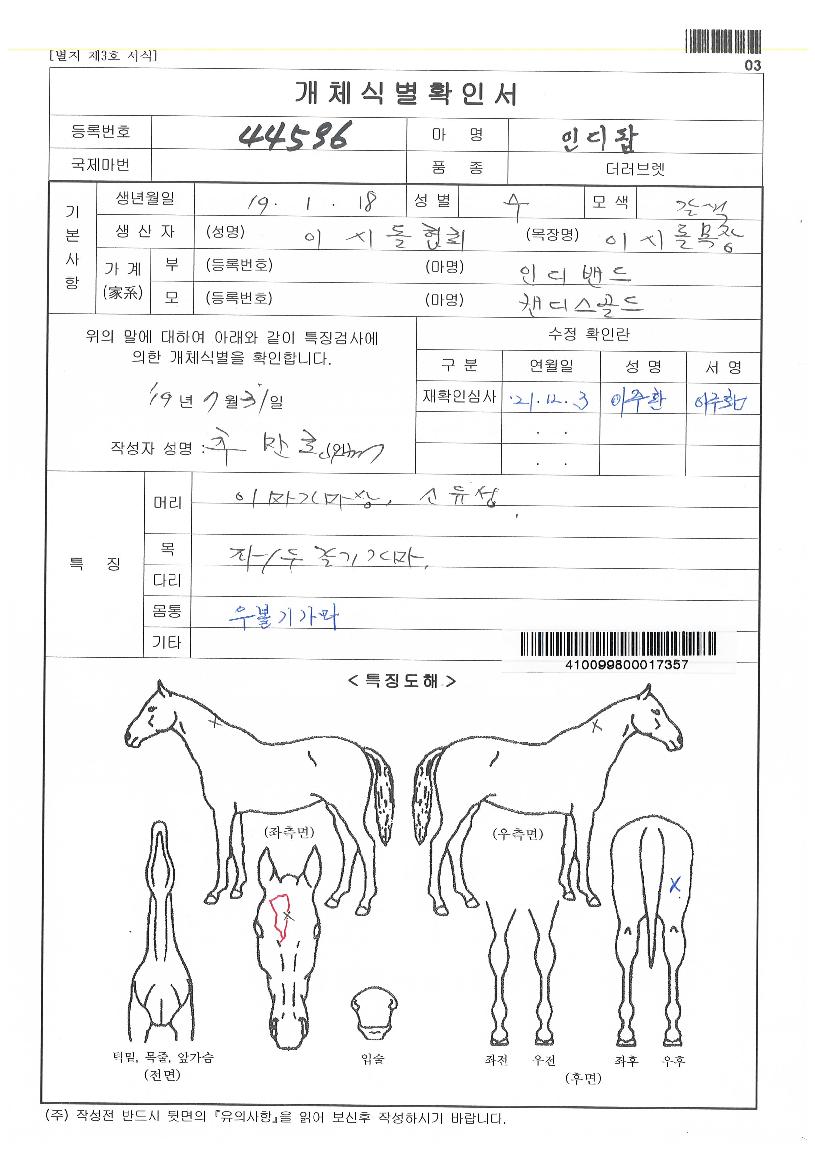 [별지 제3호 서식]
03
개체식별확인서
등록번호 44596 마 명 인디잡
국제마번 품 종 더러브렛
기본사항
생년월일 19. 1. 18 성별 수 모색 갈색
생산자 (성명) 이시돌협회 (목장명) 이시돌목장
가계 (家系) 부 (등록번호) (마명) 인디밴드
모 (등록번호) (마명) 캔디스골드
위의 말에 대하여 아래와 같이 특징검사에
의한 개체식별을 확인합니다.
'19년 7월 31일
작성자 성명 : 추만호
수정 확인란
구분 연월일 성명 서명
재확인심사 '21.12.3 이주환 이주환
. .
. .
특 징
머리 이마가마상, 소유성
목 좌/우 줄기가마.
다리
몸통 우볼기가마
기타
410099800017357
< 특징도해 >
(좌측면) (우측면)
턱밑, 목줄, 앞가슴
(전면)
입술
좌전 우전 좌후 우후
(후면)
(주) 작성전 반드시 뒷면의 『유의사항』을 읽어 보신후 작성하시기 바랍니다.